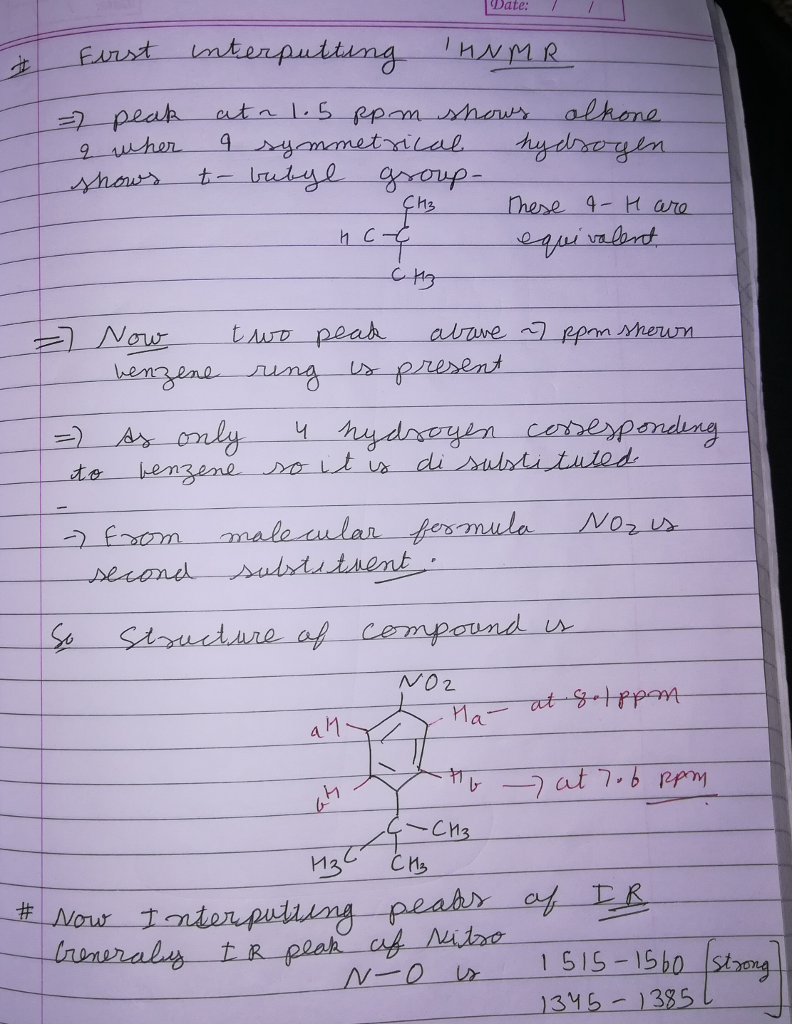 Date: / /
# First interputting ¹HNMR
=> peak at ~ 1.5 ppm shows alkane
& wher 9 symmetrical hydrogen
shows t-butyl group-
CH3 These 9-H are
H C-C equivalent.
CH3
=> Now two peak above ~7 ppm shown
benzene ring is present
=) As only 4 hydrogen corresponding
to benzene so it is di substituted.
-> From molecular formula NO2 is
second substituent.
So Structure of compound is
NO2
aH Ha - at 8.1 ppm
bH Hb -> at 7.6 ppm
C-CH3
H3C CH3
# Now Interputting peaks of IR
Generaly IR peak of Nitro
N-O is 1515-1560 [strong]
1345-1385